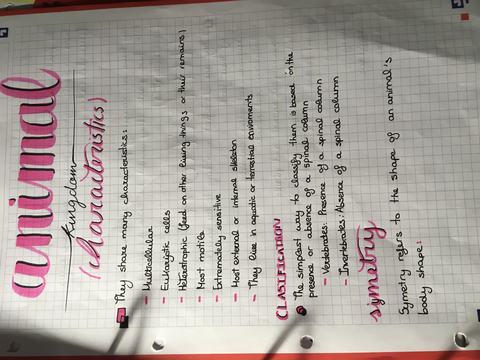 animal
kingdom
(characteristics)
They share many characteristics:
- Multicellular
- Eukaryotic cells
- Heterotrophic (feed on other living things or their remains)
- Most motile
- Extremadely sensitive
- Most external or internal skeleton
- They live in aquatic or terrestrial enviroments
CLASIFICATION
The simplest way to classify them is based on the
presence or absence of a spinal column
- Vertebrates: Presence of a spinal column
- Invertebrates: Absence of a spinal column
symetry
Symetry refers to the shape of an animal's
body shape: